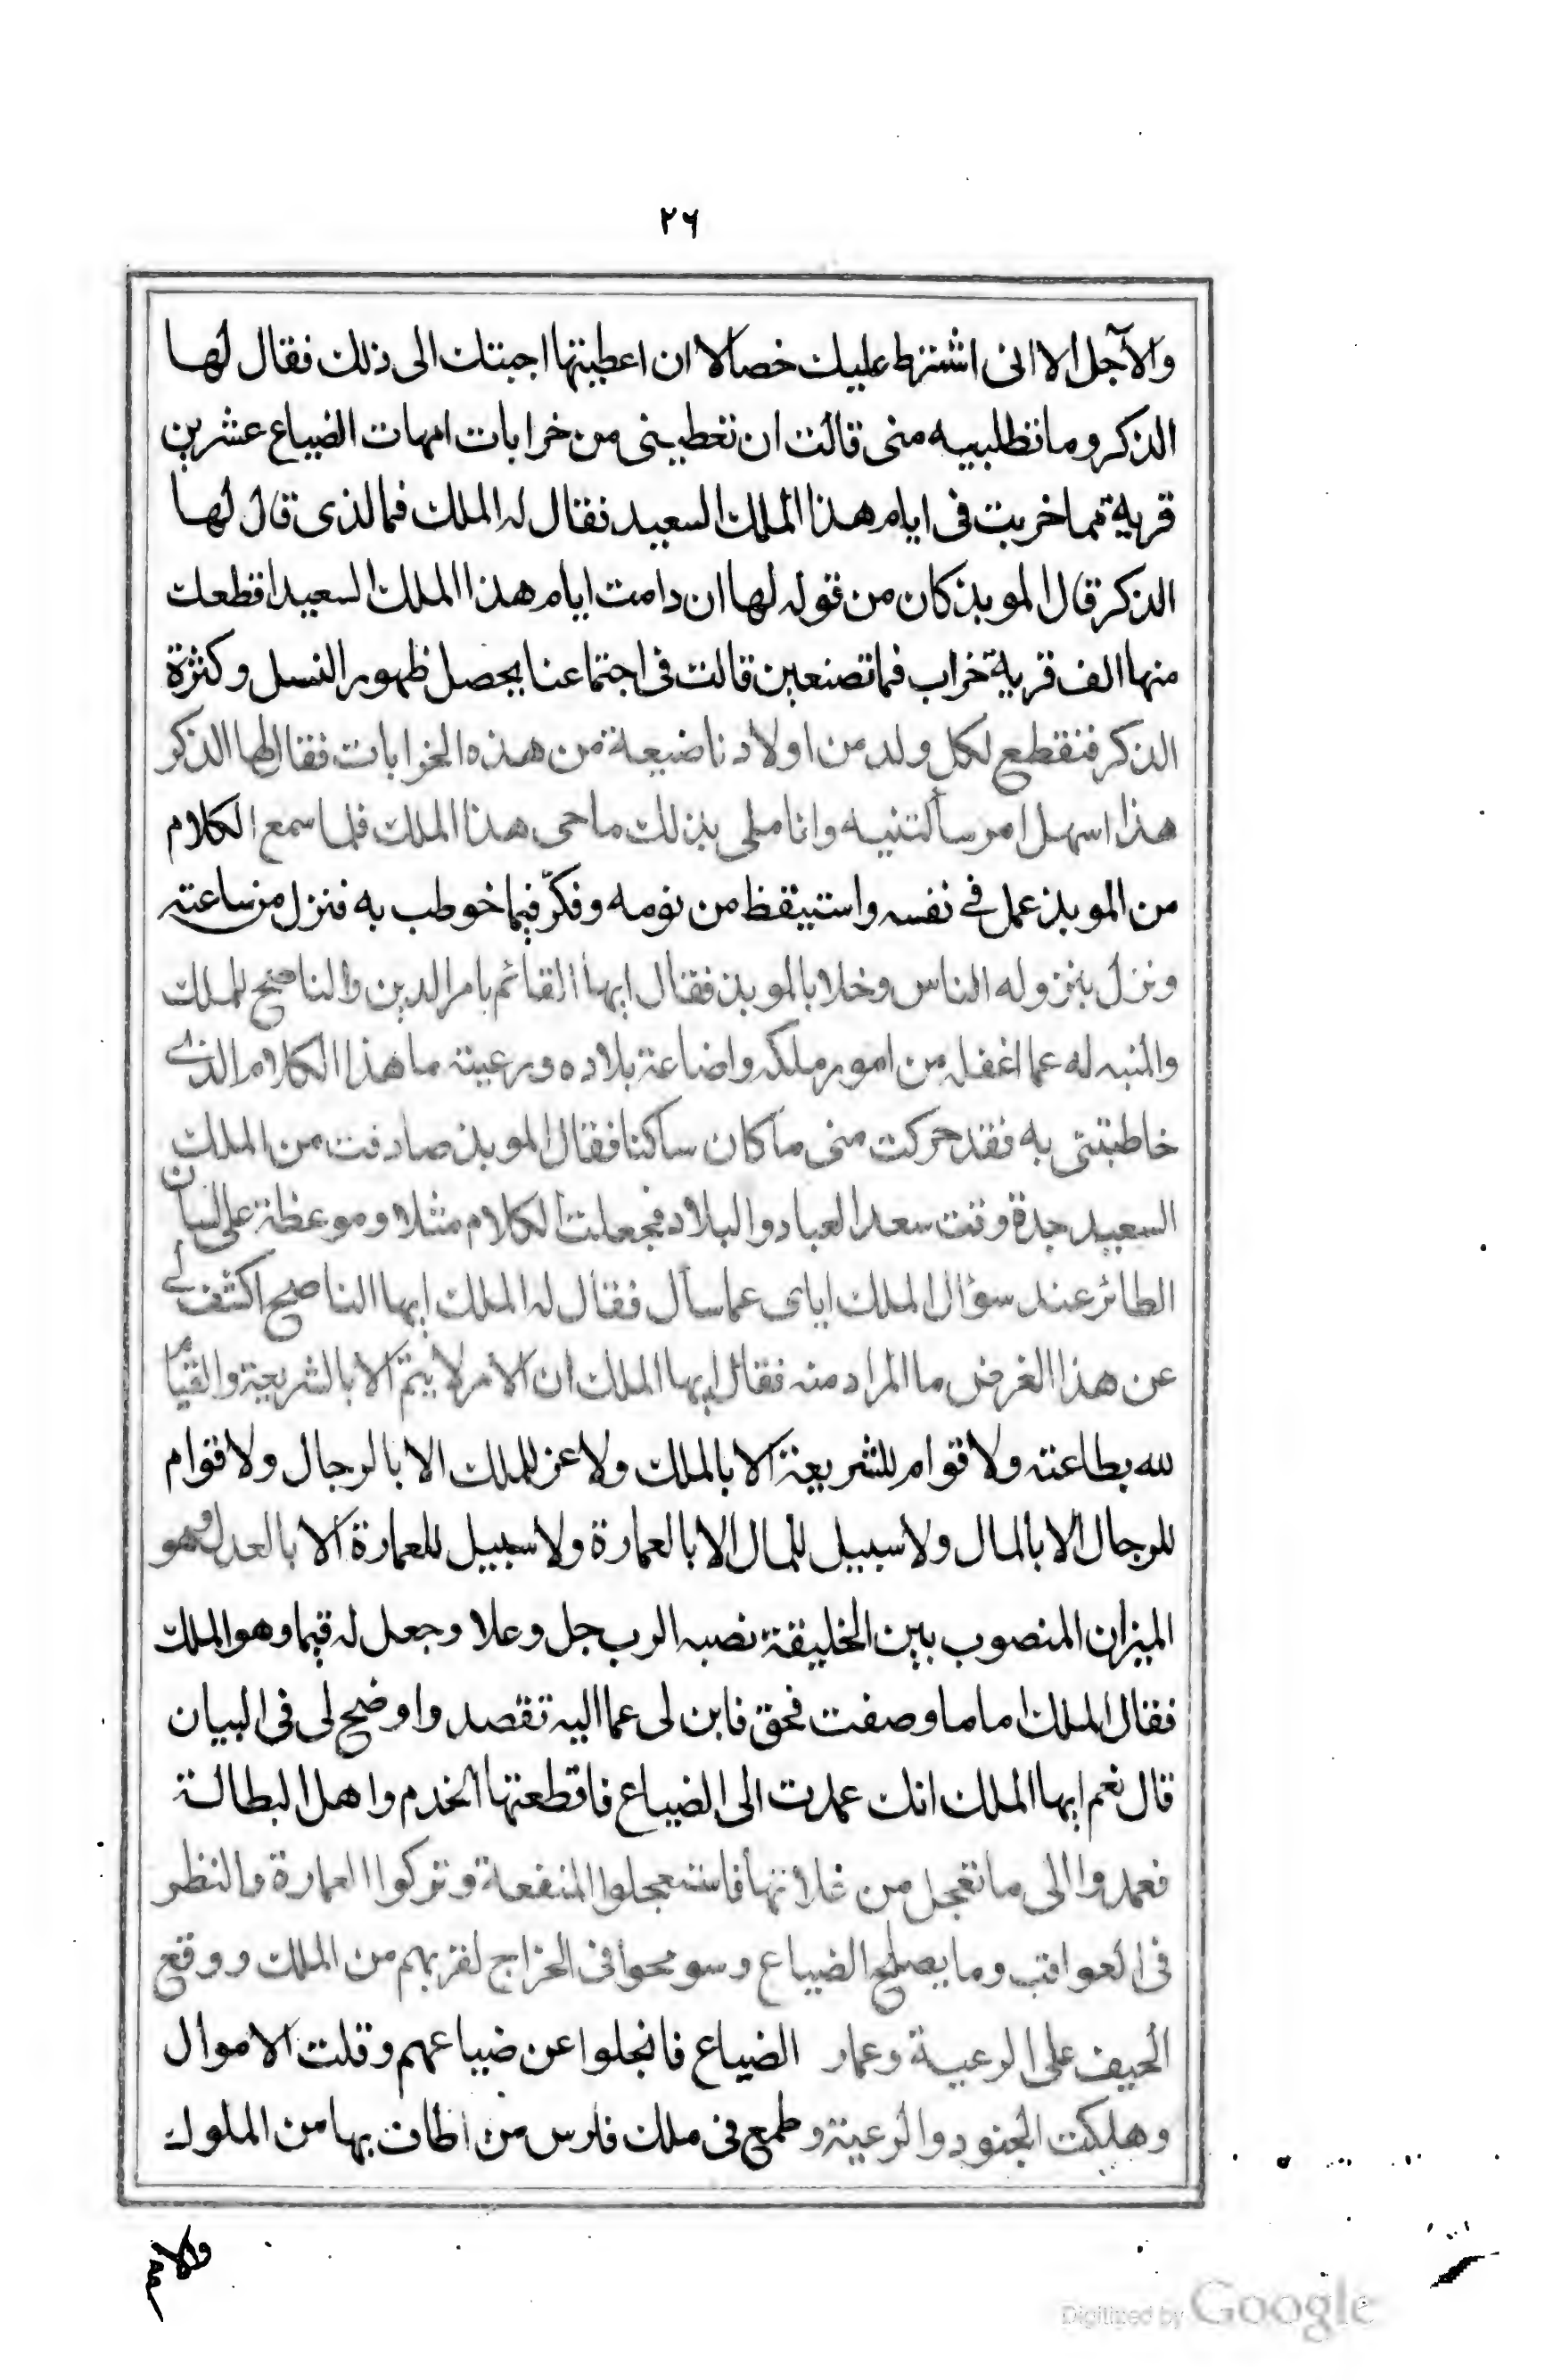 ٢٦
والآجل الا انى اشترط عليك خصالا ان اعطيتها اجبتك الى ذلك فقال لها
الذكر وما تطلبيه منى قالت ان تعطينى من خرابات امهات الضياع عشرين
قرية مما خربت فى ايام هذا الملك السعيد فقال له الملك فما الذى قال لها
الذكر قال الموبذ كان من قوله لها ان دامت ايام هذا الملك السعيد اقطعك
منها الف قرية خراب فما تصنعين قالت فى اجتماعنا يحصل ظهور النسل وكثرة
الذكر فنقطع لكل ولد من اولادنا ضيعة من هذه الخرابات فقال لها الذكر
هذا اسهل امر سألتنيه وانا ملى بذلك ما حى هذا الملك فلما سمع الكلام
من الموبذ عمل فى نفسه واستيقظ من نومه وفكّر فيما خوطب به فنزل من ساعته
ونزل بنزوله الناس وخلا بالموبذ فقال ايها القائم بامر الدين والناصح للملك
والمنبه له عما اغفله من امور ملكه واضاعة بلاده ورعيته ما هذا الكلام الذى
خاطبتنى به فقد حركت منى ما كان ساكنا فقال الموبذ صادفت من الملك
السعيد جدة وقت سعد العباد والبلاد فجعلت الكلام مثلا وموعظة على لسان
الطائر عند سؤال الملك اياى عما سأل فقال له الملك ايها الناصح اكشف لى
عن هذا الغرض ما المراد منه فقال ايها الملك ان الامر لا يتم الا بالشريعة والقيام
لله بطاعته ولا قوام للشريعة الا بالملك ولا عز للملك الا بالرجال ولا قوام
للرجال الا بالمال ولا سبيل للمال الا بالعمارة ولا سبيل للعمارة الا بالعدل وهو
الميزان المنصوب بين الخليقة نصبه الرب جل وعلا وجعل له قيما وهو الملك
فقال الملك اما ما وصفت فحق فابن لى عما اليه تقصد واوضح لى فى البيان
قال نعم ايها الملك انك عمدت الى الضياع فاقطعتها الخدم واهل البطالة
فعمدوا الى ما تعجل من غلاتها فاستعجلوا المنفعة وتركوا العمارة والنظر
فى العواقب وما يصلح الضياع وسومحوا فى الخراج لقربهم من الملك ووقع
الحيف على الرعية وعمار الضياع فانجلوا عن ضياعهم وقلت الاموال
وهلكت الجنود والرعية وطمع فى ملك فارس من اطاف بها من الملوك
والامم
Digitized by Google